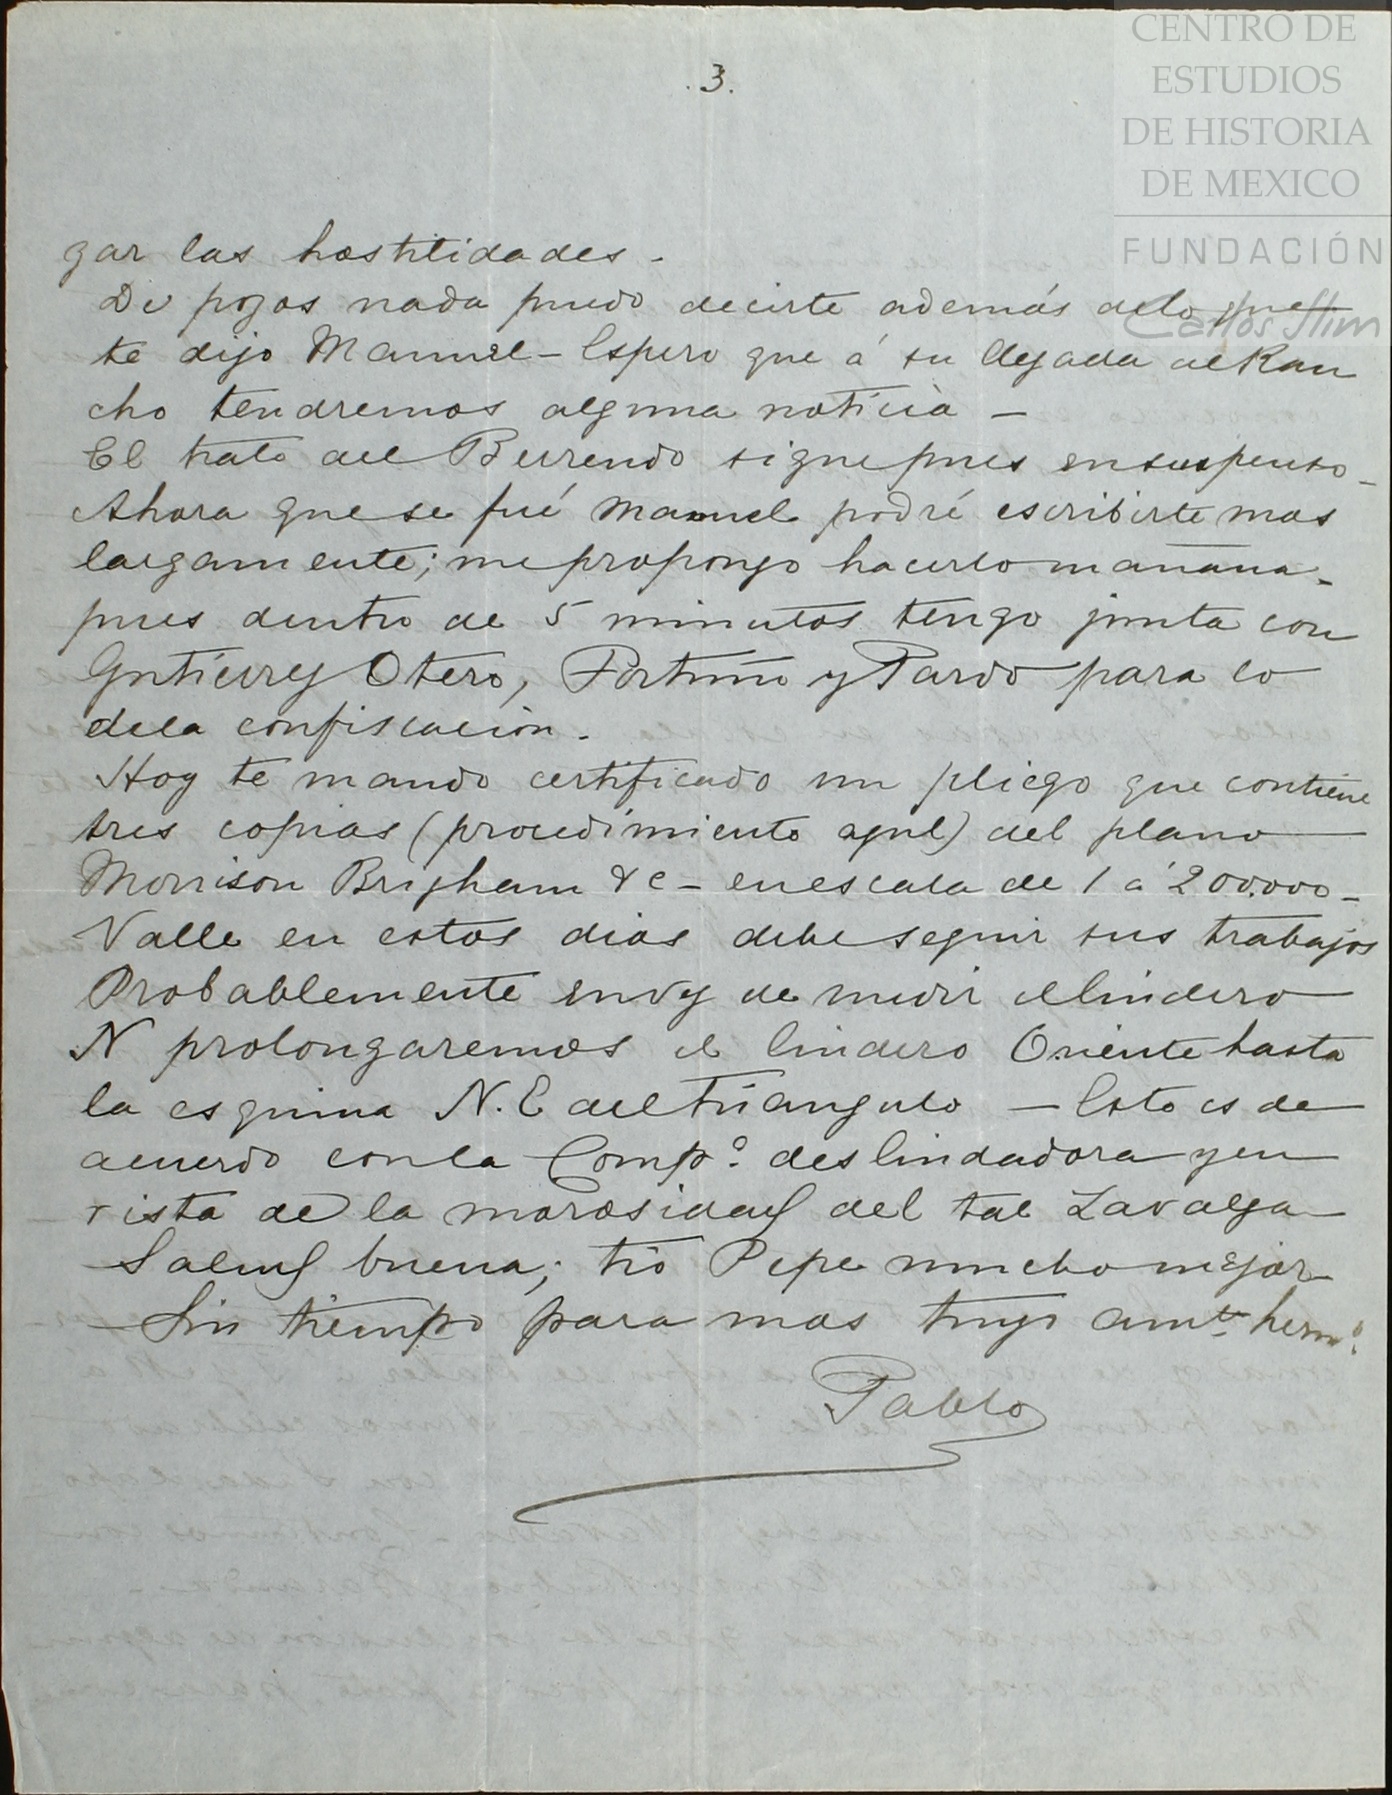 CENTRO DE
ESTUDIOS
DE HISTORIA
DE MEXICO
FUNDACIÓN
Carlos Slim
.3.
gar las hostilidades.
De pozos nada puedo decirte además delo que
te dijo Manuel – Espero que á su llegada al Ran
cho tendremos alguna noticia –
El trato del Berrendo sigue pues en suspenso –
Ahora que se fué Manuel podré escribirte mas
largamente; me propongo hacerlo mañana –
pues dentro de 5 minutos tengo junta con
Gutierrez Otero, Fortuño y Pardo para lo
dela confiscación.
Hoy te mando certificado un pliego que contiene
tres copias (procedimiento azul) del plano
Morrison Brigham & c – en escala de 1 á 200.000 –
Valle en estos dias debe seguir sus trabajos
Probablemente en vez de medir el lindero
N prolongaremos el lindero Oriente hasta
la esquina N.E del triángulo – Esto es de
acuerdo con la Comp.ª deslindadora y en
vista de la morosidad del tal Lavalga
Salud buena; tio Pepe mucho mejor
– Sin tiempo para mas tuyo amte. hermº.
Pablo